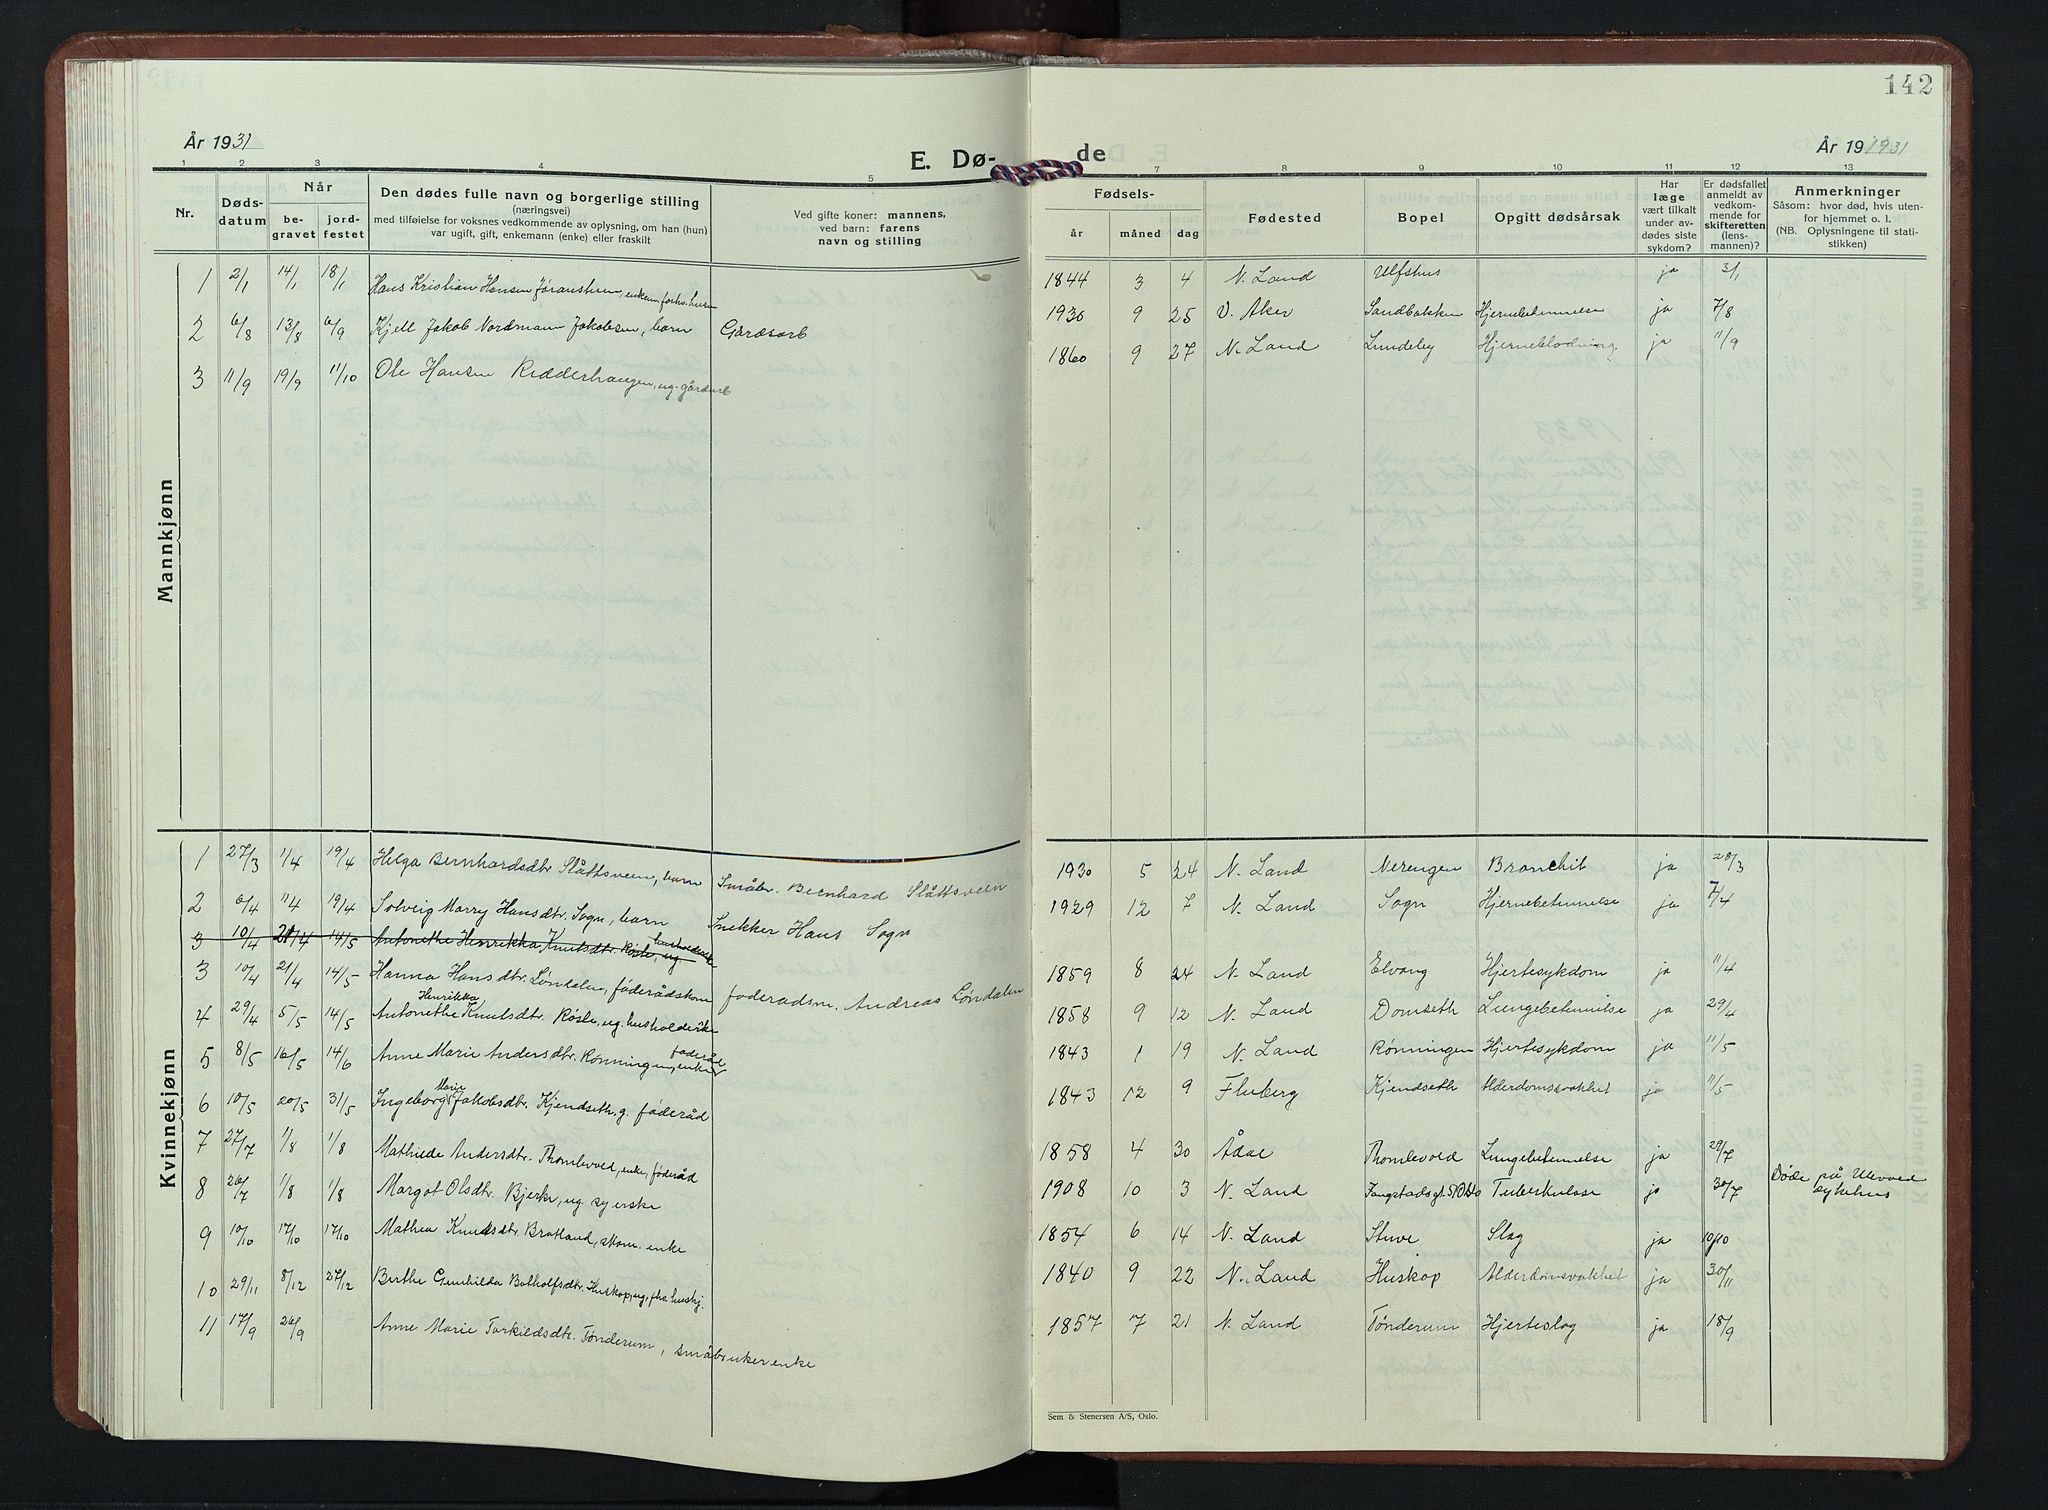 142
År 1931
E. Dø-
de
År 19 1931
1 2 3 4 5 7 8 9 10 11 12 13
Nr.
Døds-
datum
Når
be-
gravet
jord-
festet
Den dødes fulle navn og borgerlige stilling
(næringsvei)
med tilføielse for voksnes vedkommende av oplysning, om han (hun)
var ugift, gift, enkemann (enke) eller fraskilt
Ved gifte koner: mannens,
ved barn: farens
navn og stilling
Fødsels-
år måned dag
Fødested
Bopel
Opgitt dødsårsak
Har
læge
vært tilkalt
under av-
dødes siste
sykdom?
Er dødsfallet
anmeldt av
vedkom-
mende for
skifteretten
(lens-
mannen)?
Anmerkninger
Såsom: hvor død, hvis uten-
for hjemmet o. l.
(NB. Oplysningene til stati-
stikken)
Mannkjønn
1 2/1 14/1 18/1 Hans Kristian Hansen Jøranstuen, enkem. forhv. husm 1844 3 4 N. Land Ulfshus ja 3/1
2 6/8 13/8 6/9 Kjell Jakob Nordmann Jakobsen, barn Gårdsarb 1930 9 25 V. Aker Sandbakken Hjernebetennelse ja 7/8
3 11/9 19/9 11/10 Ole Hansen Ridderhaugen, ug. gårdarb 1860 9 27 N. Land Lundeby Hjerneblødning ja 11/9
Kvinnekjønn
1 27/3 1/4 19/4 Helga Bernhardsdtr Slåttsveen, barn Småbr. Bernhard Slåttsveen 1930 5 24 N. Land Nerengen Bronchit ja 28/3
2 6/4 11/4 19/4 Solveig Marry Hansdtr. Sogn, barn Snekker Hans Sogn 1929 12 7 N. Land Sogn Hjernebetennelse ja 7/4
3 10/4 21/4 14/5 Antonethe Henrikka Knutsdtr. Røsle, ug husholderske
3 10/4 21/4 14/5 Hanna Hansdtr. Løndalen, føderådskone føderadsm. Andreas Løndalen 1859 8 24 N. Land Elvang Hjertesykdom ja 11/4
4 29/4 5/5 14/5 Antonethe Henrikka Knutsdtr. Røsle, ug. husholderske 1858 9 12 N. Land Domseth Lungebetennelse ja 29/4
5 8/5 16/5 14/6 Anne Marie Andersdtr. Rønningen, føderåds enke 1843 1 19 N. Land Rønningen Hjertesykdom ja 11/5
6 10/5 20/5 31/5 Ingeborg Marie Jakobsdtr. Kjendseth, g. føderåd 1843 12 9 Fluberg Kjendseth Alderdomssvakhet ja 11/5
7 27/7 1/8 1/8 Mathilde Andersdtr. Thomlevold, enke, føderåd 1858 4 30 Ådal Thomlevold Lungebetennelse ja 29/7
8 26/7 1/8 1/8 Margot Olsdtr. Bjerke, ug. syerske 1908 10 3 N. Land Tuberkulose ja 30/7 Døde på Ulevoed sykehus
9 10/10 17/10 17/10 Mathea Knudsdtr. Bratland, skom. enke 1854 6 14 N. Land Stuve Slag ja 10/10
10 29/11 8/12 27/12 Berthe Gunhilda Botholfsdtr. Huskop, ug, fhv. hushj. 1840 9 22 N. Land Huskop Alderdomsvakhet ja 30/11
11 17/9 26/9 Anne Marie Torkildsdtr. Tønderum, småbrukerenke 1857 7 21 N. Land Tønderum Hjerteslag ja 18/9
Sem & Stenersen A/S, Oslo.